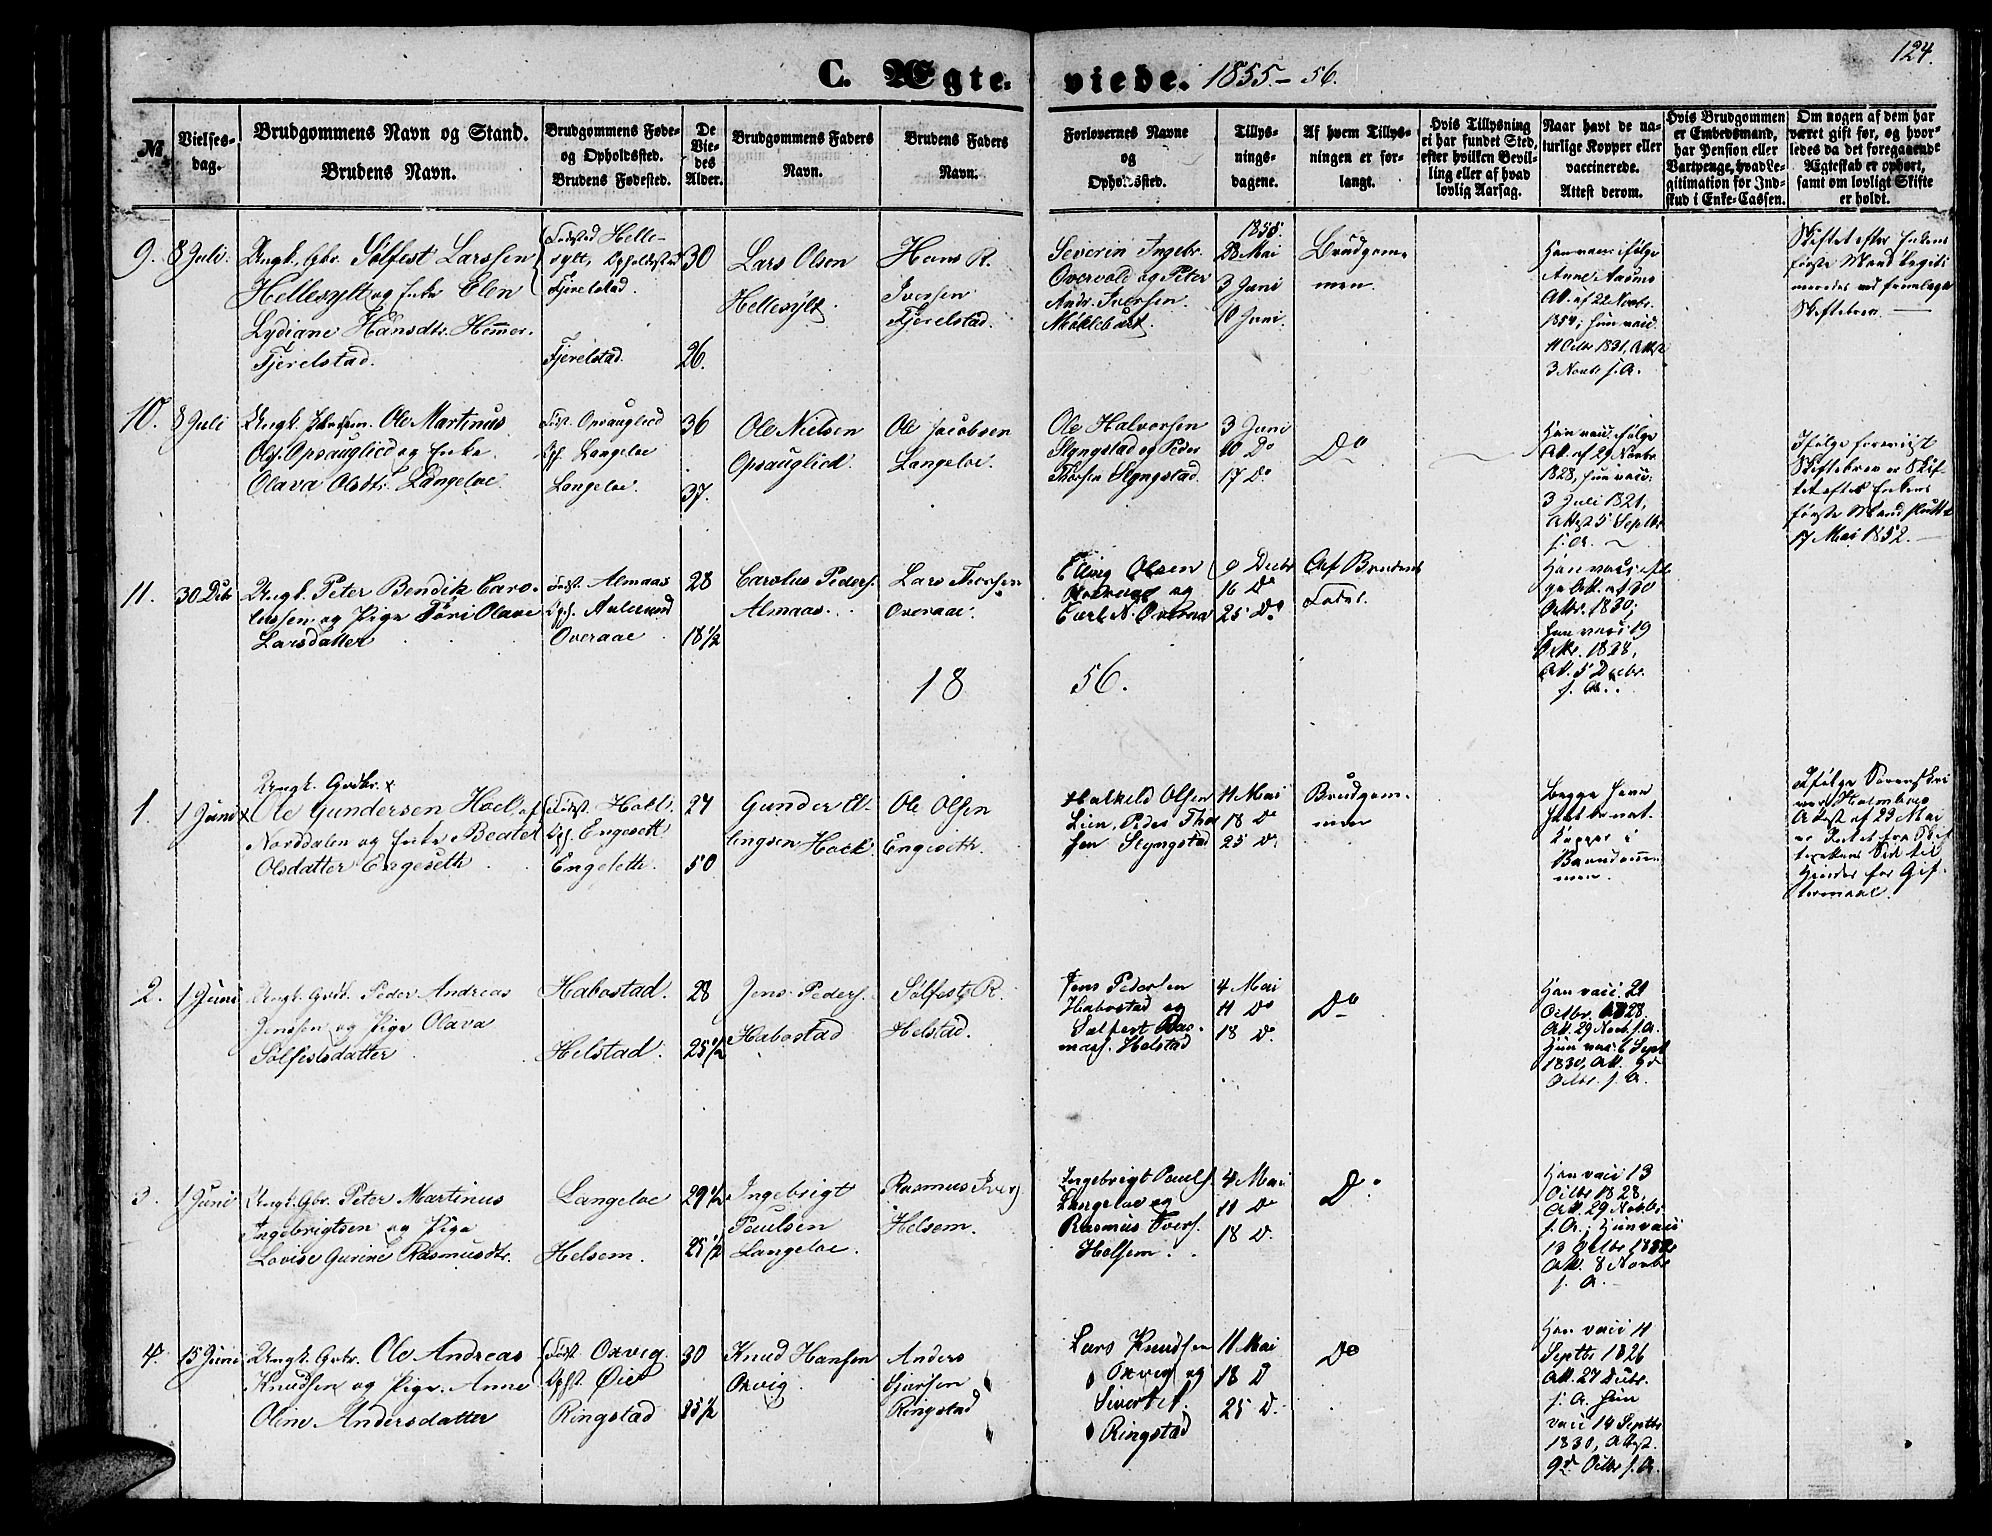 124.
C. Ægteviede. 1855-56.
№
Vielsesdag.
Brudgommens Navn og Stand.
Brudens Navn.
Brudgommens Føde-
og Opholdssted.
Brudens Fødested.
De
Vie-
des
Alder.
Brudgommens Faders
Navn.
Brudens Faders
Navn.
Forlovernes Navne
og
Opholdssted.
Tillys-
nings-
dagene.
Af hvem Tillys-
ningen er for-
langt.
Hvis Tillysning
ei har fundet Sted,
efter hvilken Bevil-
ling eller af hvad
lovlig Aarsag.
Naar havt de na-
turlige Kopper eller
vaccinerede.
Attest derom.
Hvis Brudgommen
er Embedsmand,
har Pension eller
Vartpenge, hvad Le-
gitimation for Ind-
skud i Enke-Cassen.
Om nogen af dem har
været gift før, og hvor-
ledes da det foregaaende
Ægteskab er ophørt,
samt om lovligt Skifte
er holdt.
9. 8 Juli.
Ungk. Gbr. Solfest Larssen
Hellesylt og Enke Elen
Lydiane Hansdtr. Hemmer.
Fjerelstad.
Fodsted Helle-
sylt, Opholdssted
Fjerelstad.
Fjerelstad.
30
26.
Lars Olsen
Hellesylt
Hans R.
Iversen
Fjerelstad.
Severin Ingebr.
Overvold og Peter
Andr. Iversen
Møklebust.
1855.
28 Mai
3 Juni
10 Juni
Brudgom-
men.
Han vacc. ifølge
Anne Aarums
Att. af 22 Novbr.
1854; hun vacc.
11 Octbr 1831, Attest
3 Novbr s. A.
Skiftet efter Enkens
første Mand legiti-
meredes ved fremlagt
Skiftebrev.
10. 8 Juli
Ole Martinus
Ols. Opsauglied og Enke
Olava Olsdtr. Langeloe.
Fst. Opsauglied
Oph. Langeloe
Langeloe.
36
37.
Ole Nielsen
Opsauglied.
Ole Jacobsen
Langeloe.
Ole Halvorsen
Slyngstad og Peder
Thorsen Slyngstad.
3 Juni
10 Do
17 Do
Do
Han vacc. ifølge
Att. af 29 Novbr.
1828, hun vacc.
3 Juli 1821,
Attest 5 Septbr
s. A.
Ifølge foreviist
Skiftebrev er Skif-
tet efter Enkens
første Mand sluttet
17 Mai 1852.
11. 30 Dbr
Ungk. Peter Bendik Caro-
lussen og Pige Tori Olave
Larsdatter
Fodst. Almaas
Oph. Aalesund
Overaae
28
18 1/2
Carolus Peders.
Almaas.
Lars Thorsen
Overaae.
Elling Olsen
Overaae og
Carl N. Overaa
9 Decbr
16 Do
25 Do
Af Brudens
Fader.
Han vacc. iføl-
ge Att. af 30
Octbr. 1830;
hun vacc. 19
Octbr. 1838,
Att. 5 Decbr.
s. A.
1856.
1. 1 Juni
Ungk. Grdbr.
Ole Gundersen Hoel, af
Norddalen og Enke Beate
Olsdatter Engeseth.
Fodst. Hoel.
Oph. Engeseth
Engeseth.
27
50
Gunder El-
lingsen Hoel.
Ole Olsen
Engeseth.
Halkild Olsen
Lien, Peder Thor
sen Slyngstad
11 Mai
18 Do
25 D.
Brudgom-
men
Begge have
havt de nat.
Kopper i
Barndom-
men.
Ifølge Sorenskri-
ver Holmboes
Attest af 23 Mai
er Intet fra Skif-
terettens Side til
Hinder for Gif-
termaal.
2. 1 Juni
Ungk. Grdb. Peder Andreas
Jenssen og Pige Olava
Solfestsdatter
Habostad.
Helstad.
28
25 1/2
Jens Peders.
Habostad
Solfest R.
Helstad.
Jens Pedersen
Habostad og
Solfest Ras-
muss. Helstad
4 Mai
11 Do
18 D.
Do
Han vacc. 21
Octbr. 1828,
Att. 29 Novb. s. A.
Hun vac. 6 Sept
1830, Att. 9d
Octbr. s. A.
3. 1 Juni
Ungk. Gbr. Peter Martinus
Ingebrigtsen og Pige
Lovise Gurine Rasmusdtr.
Langeloe
Helsem.
29 1/2
25 1/2
Ingebrigt
Paulsen
Langeloe.
Rasmus Ivers
Helsem.
Ingebrigt Pauls.
Langeloe og
Rasmus Ivers.
Helsem.
4 Mai
11 Do
18 D.
Do
Han vacc 13
Octbr 1828,
Att. 29 Novbr.
s. A.; Hun vacc
13 Octbr 1832
Att. 8 Novbr
s. A.
4. 15 Juni
Ungk. Gbr. Ole Andreas
Knudsen og Pige Anne
Oline Andersdatter
Fødst. Oxvig.
Ophst. Øie
Ringstad
30
25 1/2
Knud Hansen
Oxvig
Anders
Ringstad
Lars Knudsen
Oxvig og
Sivert
Ringstad
11 Mai
18 D
25 D.
Do
Han vacc 11
Septbr 1826
Att. 27 Decbr.
s. A. Hun
vacc 14 Septbr
1830, Attest.
9d Octbr s. A.